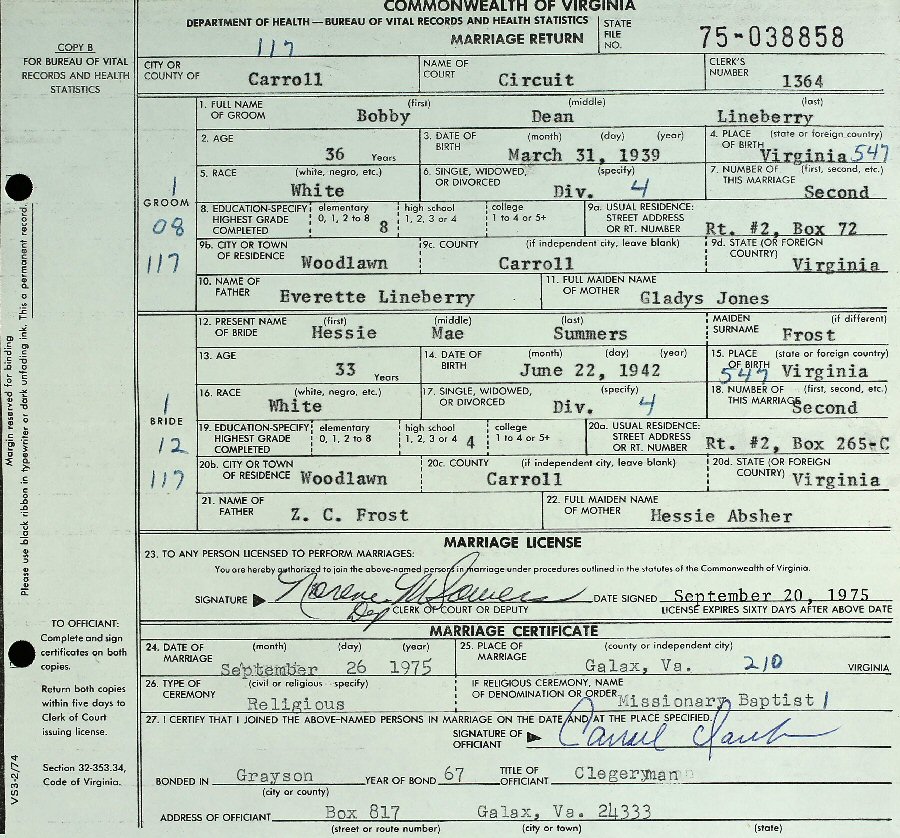 COMMONWEALTH OF VIRGINIA
DEPARTMENT OF HEALTH—BUREAU OF VITAL RECORDS AND HEALTH STATISTICS
MARRIAGE RETURN
STATE FILE NO. 75-038858
COPY B
FOR BUREAU OF VITAL
RECORDS AND HEALTH
STATISTICS
117
CITY OR COUNTY OF Carroll NAME OF COURT Circuit CLERK'S NUMBER 1364
1. FULL NAME OF GROOM (first) Bobby (middle) Dean (last) Lineberry
2. AGE 36 Years 3. DATE OF BIRTH (month) (day) (year) March 31, 1939 4. PLACE OF BIRTH (state or foreign country) Virginia 547
5. RACE (white, negro, etc.) White 6. SINGLE, WIDOWED, OR DIVORCED (specify) Div. 4 7. NUMBER OF THIS MARRIAGE (first, second, etc.) Second
1
GROOM
08
117
8. EDUCATION-SPECIFY HIGHEST GRADE COMPLETED elementary 0, 1, 2 to 8 8 high school 1, 2, 3 or 4 college 1 to 4 or 5+ 9a. USUAL RESIDENCE: STREET ADDRESS OR RT. NUMBER Rt. #2, Box 72
9b. CITY OR TOWN OF RESIDENCE Woodlawn 9c. COUNTY (if independent city, leave blank) Carroll 9d. STATE (OR FOREIGN COUNTRY) Virginia
10. NAME OF FATHER Everette Lineberry 11. FULL MAIDEN NAME OF MOTHER Gladys Jones
12. PRESENT NAME OF BRIDE (first) Hessie (middle) Mae (last) Summers MAIDEN SURNAME (if different) Frost
13. AGE 33 Years 14. DATE OF BIRTH (month) (day) (year) June 22, 1942 15. PLACE OF BIRTH (state or foreign country) 547 Virginia
16. RACE (white, negro, etc.) White 17. SINGLE, WIDOWED, OR DIVORCED (specify) Div. 4 18. NUMBER OF THIS MARRIAGE (first, second, etc.) Second
1
BRIDE
12
117
19. EDUCATION-SPECIFY HIGHEST GRADE COMPLETED elementary 0, 1, 2 to 8 high school 1, 2, 3 or 4 4 college 1 to 4 or 5+ 20a. USUAL RESIDENCE: STREET ADDRESS OR RT. NUMBER Rt. #2, Box 265-C
20b. CITY OR TOWN OF RESIDENCE Woodlawn 20c. COUNTY (if independent city, leave blank) Carroll 20d. STATE (OR FOREIGN COUNTRY) Virginia
21. NAME OF FATHER Z. C. Frost 22. FULL MAIDEN NAME OF MOTHER Hessie Absher
MARRIAGE LICENSE
23. TO ANY PERSON LICENSED TO PERFORM MARRIAGES:
You are hereby authorized to join the above-named persons in marriage under procedures outlined in the statutes of the Commonwealth of Virginia.
SIGNATURE Norene M Sowers DATE SIGNED September 20, 1975
Dep CLERK OF COURT OR DEPUTY LICENSE EXPIRES SIXTY DAYS AFTER ABOVE DATE
MARRIAGE CERTIFICATE
24. DATE OF MARRIAGE (month) (day) (year) September 26 1975 25. PLACE OF MARRIAGE (county or independent city) Galax, Va. 210 VIRGINIA
26. TYPE OF CEREMONY (civil or religious - specify) Religious IF RELIGIOUS CEREMONY, NAME OF DENOMINATION OR ORDER Missionary Baptist 1
27. I CERTIFY THAT I JOINED THE ABOVE-NAMED PERSONS IN MARRIAGE ON THE DATE AND AT THE PLACE SPECIFIED.
SIGNATURE OF OFFICIANT
BONDED IN Grayson (city or county) YEAR OF BOND 67 TITLE OF OFFICIANT Clegeryman
ADDRESS OF OFFICIANT Box 817 Galax, Va. 24333
(street or route number) (city or town) (state)
Margin reserved for binding
Please use black ribbon in typewriter or dark unfading ink. This a permanent record.
TO OFFICIANT:
Complete and sign
certificates on both
copies.
Return both copies
within five days to
Clerk of Court
issuing license.
Section 32-353.34,
Code of Virginia.
VS3-2/74